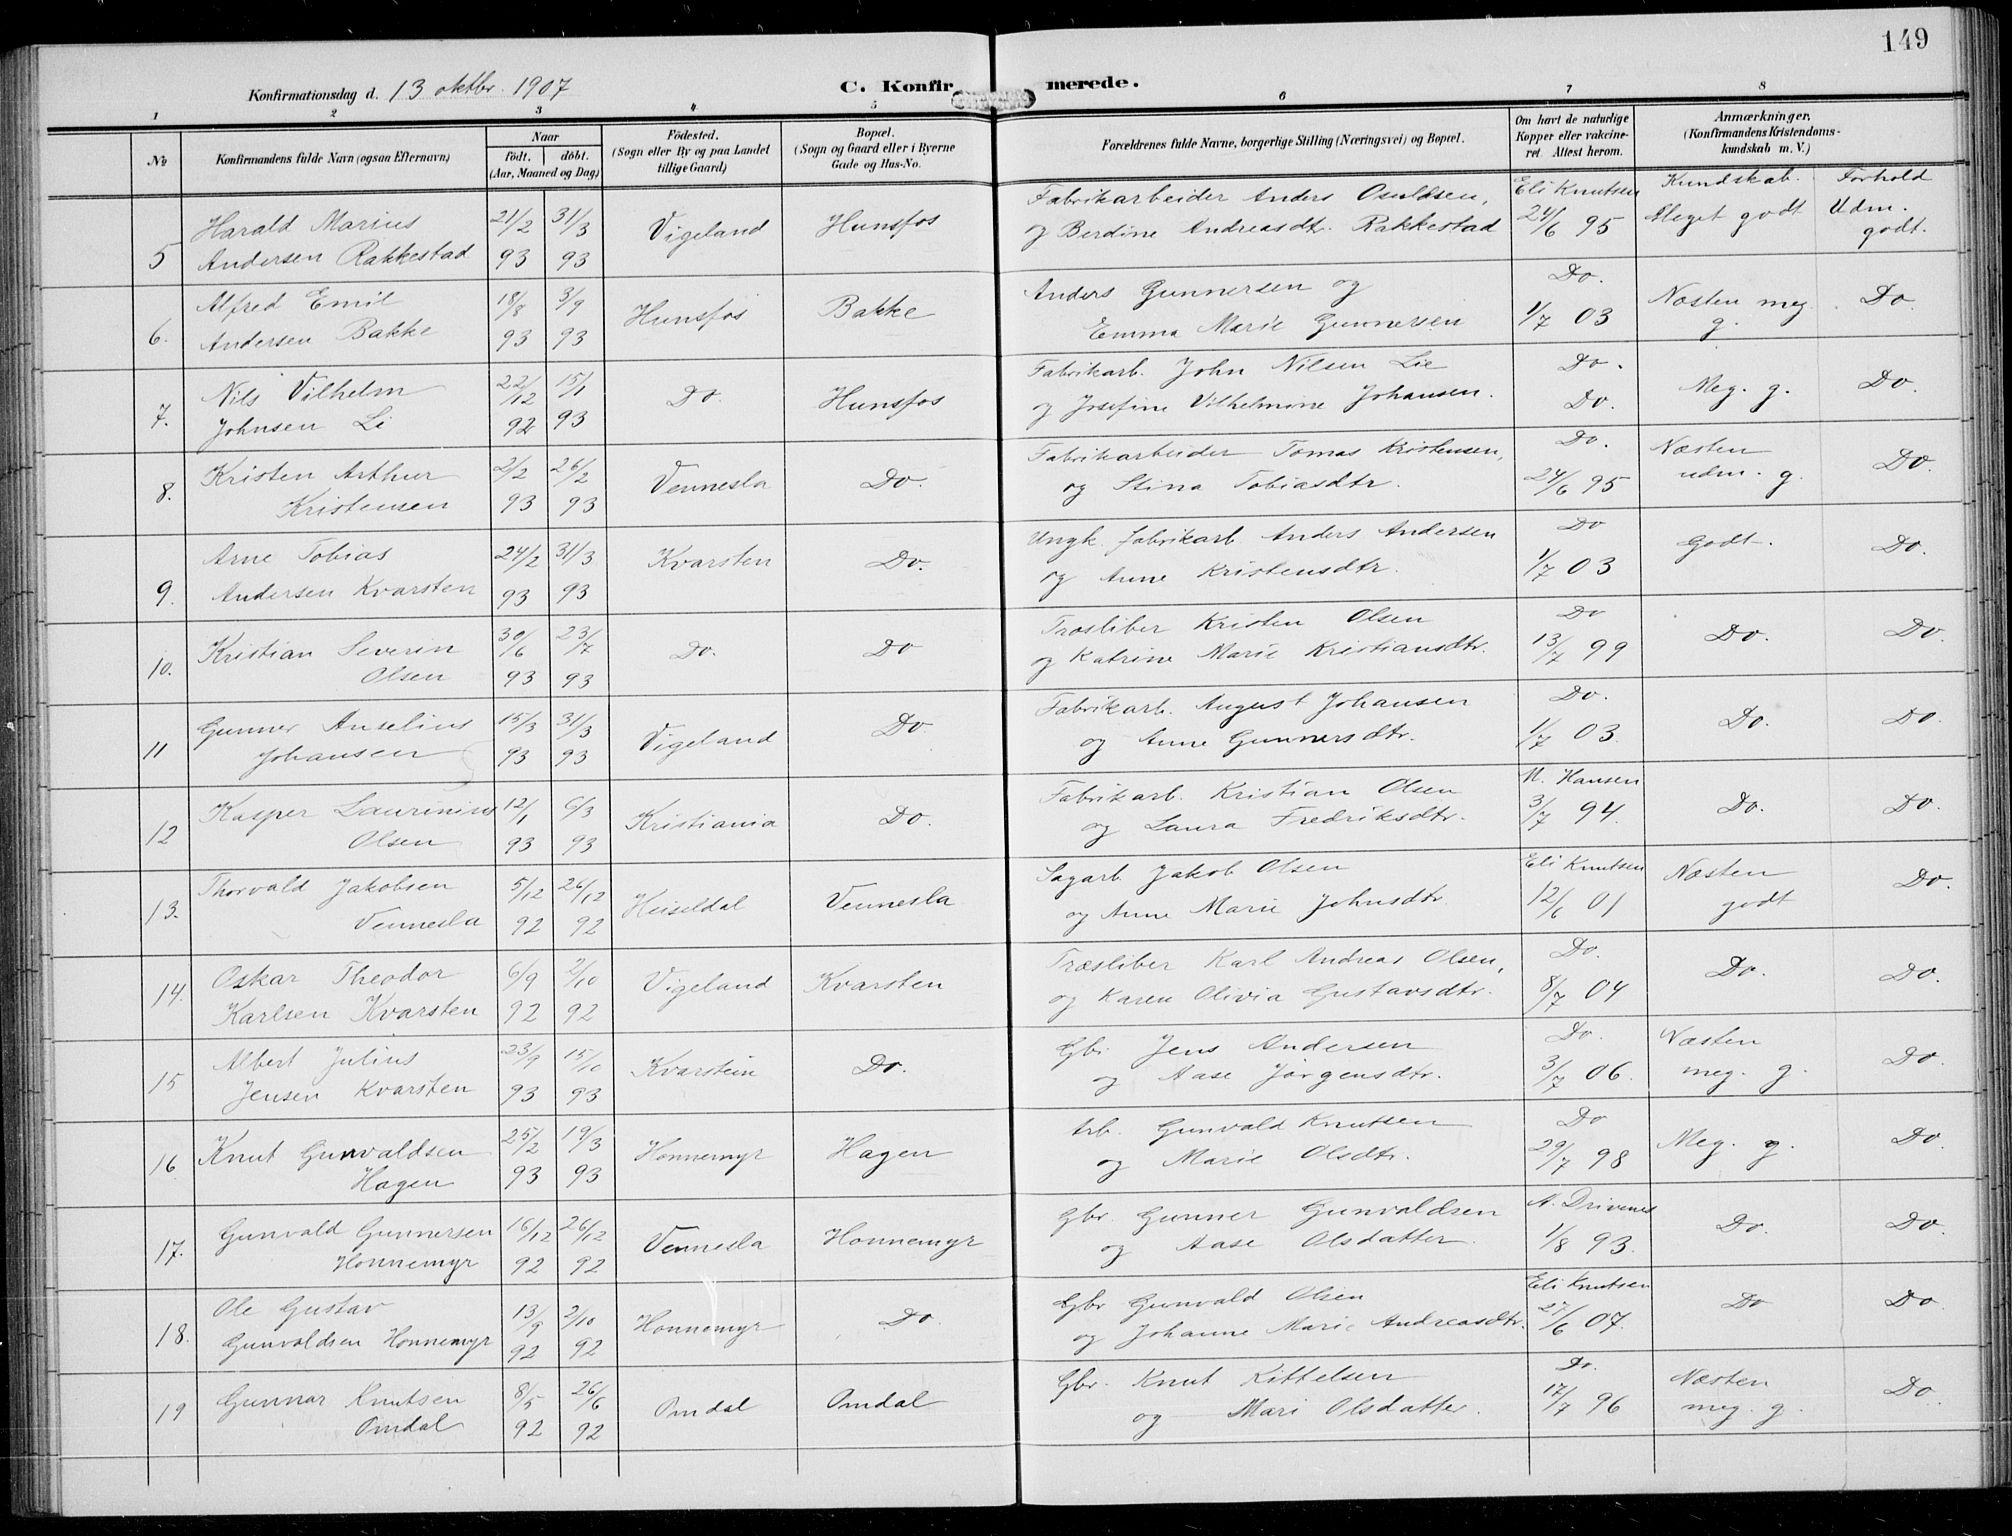 149
Konfirmationsdag d. 13 oktbr. 1907
C. Konfirmerede.
1 2 3 4 5 6 7 8
No
Konfirmandens fulde Navn (ogsaa Efternavn)
Naar
født. døbt.
(Aar, Maaned og Dag)
Fødested.
(Sogn eller By og paa Landet
tillige Gaard)
Bopæl.
(Sogn og Gaard eller i Byerne
Gade og Hus-No.
Forældrenes fulde Navne, borgerlige Stilling (Næringsvei) og Bopæl.
Om havt de naturlige
Kopper eller vakcine-
ret. Attest herom.
Anmærkninger,
(Konfirmandens Kristendoms-
kundskab m. V.)
Kundskab. Forhold
Harald Marius 21/2 31/3 Vigeland Hunsfos Fabrikarbeider Anders Osuldsen, Eli Knutsen Meget godt Udm.
5 Andersen Rakkestad 93 93 og Berdine Andreasdt. Rakkestad 24/6 95 godt.
Alfred Emil 18/8 3/9 Hunsfos Bakke Anders Gunnersen og Do. Næsten meg. Do
6. Andersen Bakke 93 93 Emma Marie Gunnersen 1/7 03 g.
Nils Vilhelm 22/12 15/1 Do. Hunsfos Fabrikarb. John Nilsen Lie Do. Meg. g. Do.
7. Johnsen Li 92 93 og Josefine Vilhelmine Johansen. Do.
Kristen Arthur 2/2 26/2 Vennesla Do. Fabrikarbeider Tomas Kristensen, Do. Næsten Do.
8. Kristensen 93 93 og Stina Tobiasdtr. 24/6 95 udm. g.
Arne Tobias 24/2 31/3 Kvarsten Do. Ungk. fabrikarb Anders Andersen Do Godt. Do.
9. Andersen Kvarsten 93 93 og Anne Kristensdtr. 1/7 03
Kristian Severin 30/6 23/7 Do. Do Træsliber Kristen Olsen Do Do. Do.
10. Olsen 93 93 og Katrine Marie Kristiansdtr. 13/7 99
Gunner Anselius 15/3 31/3 Vigeland Do. Fabrikarb. August Johansen Do. Do. Do.
11 Johansen 93 93 og Anne Gunnersdtr. 1/7 03.
Kasper Laurinius 12/1 6/3 Kristiania Do. Fabrikarb. Kristian Olsen M. Hansen Do. Do.
12 Olsen 93 93 og Laura Fredriksdtr. 3/7 94.
Thorvald Jakobsen 5/12 26/12 Heiseldal Vennesla Sagarb. Jakob Olsen Eli Knutsen Næsten Do.
13. Vennesla 92 92 og Anne Marie Johnsdtr 12/6 01 godt
Oskar Theodor 6/9 2/10 Vigeland Kvarsten Træsliber Karl Andreas Olsen, Do. Do. Do.
14. Karlsen Kvarsten 92 92 og Karen Olivia Gustavsdtr. 8/7 04
Albert Julius 23/9 15/10 Kvarstein Do. Gbr. Jens Andersen Do. Næsten Do.
15 Jensen Kvarsten 93 93 og Aase Jørgensdtr. 3/7 06. meg. g.
Knut Gunvaldsen 25/2 19/3 Honnemyr Hagen Arb. Gunvald Knutsen Do Meg. g. Do.
16 Hagen 93 93 og Marie Olsdtr. 29/7 98
Gunvald Gunnersen 16/12 26/12 Vennesla Honnemyr Gbr. Gunner Gunvaldsen A. Drivenes Do. Do.
17. Honnemyr 92 92 og Aase Olsdatter. 1/8 93.
Ole Gustav 13/9 2/10 Honnemyr Do. Gbr Gunvald Olsen Eli Knutsen Do Do.
18. Gunvaldsen Honnemyr 92 92 og Johanne Marie Andreasdtr. 27/6 07.
Gunnar Knutsen 8/5 26/6 Omdal Omdal Gbr. Knut Kittelsen Do. Næsten Do
19 Omdal 92 92 og Mari Olsdatter. 17/7 96 meg. g.